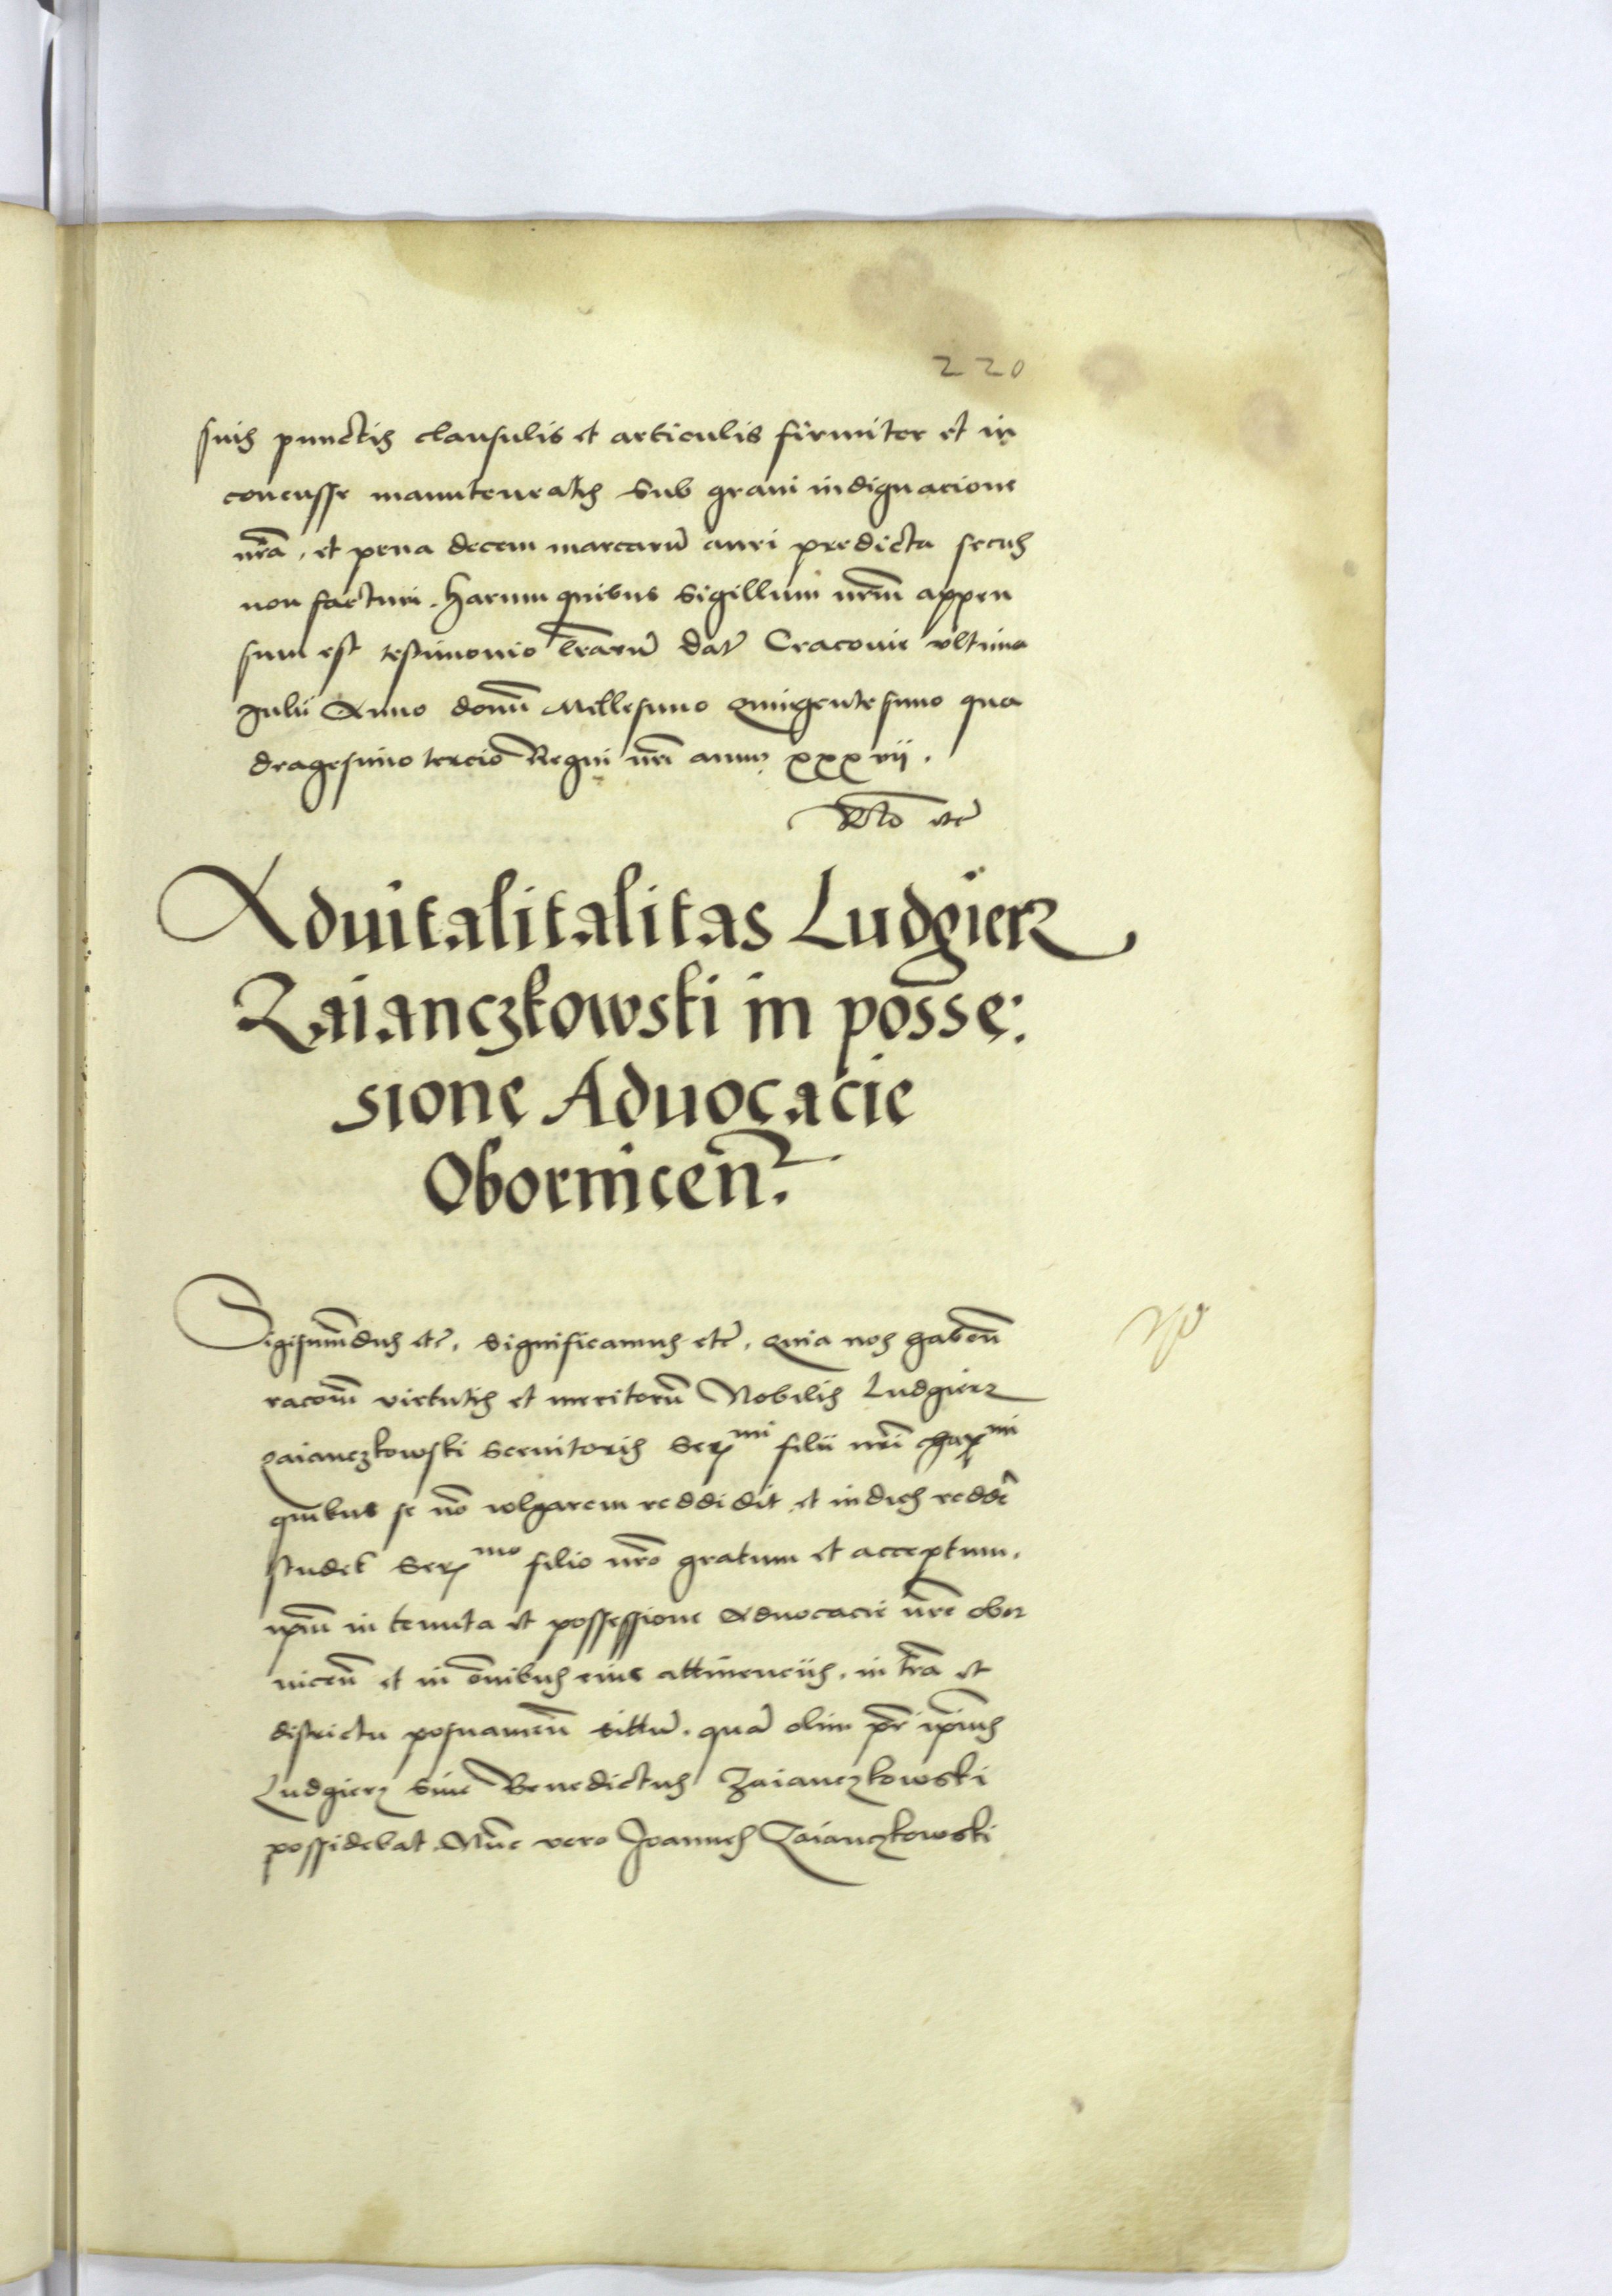 220
suis punctis clausulis et articulis firmiter et in
concusse manuteneatis sub gravi indignacione
nr̄a, et pena decem marcarū auri predicta secus
non facturi. Harum quibus sigillum nr̄m appen
sum est testimonio lr̄arū dat̄ Cracovie ultima
Julii Anno domī Millesimo quingentesimo qua
dragesimo tercio Regni nr̄i anno xxxvii.
Rḷo etc̄
Advitalitalitas Ludgierz
Zaianczkowski in posse:
sione Advocacie
Obornicen̄.
Sigismūdus etc̄. significamus etc̄. Quia nos habeñ
racōem virtutis et meritorū Nobilis Ludgierz
Zaianczkowski servitoris Ser mi filii nr̄i char mi
quibus se nō volgarem reddidit et indies redder̄
studet Ser mo filio nr̄o gratum et acceptum,
ipm̄ in tenuta et possessione Advocacie nr̄e obor
niceñ et in oībus eius attinenciis, in tr̄a et
districtu posnanieñ sittū. quā olim pr̄ ipīus
Ludgierz sive Benedictus Zaianczkowski
possidebat. Nūc vero Joannes Zaianczkowski